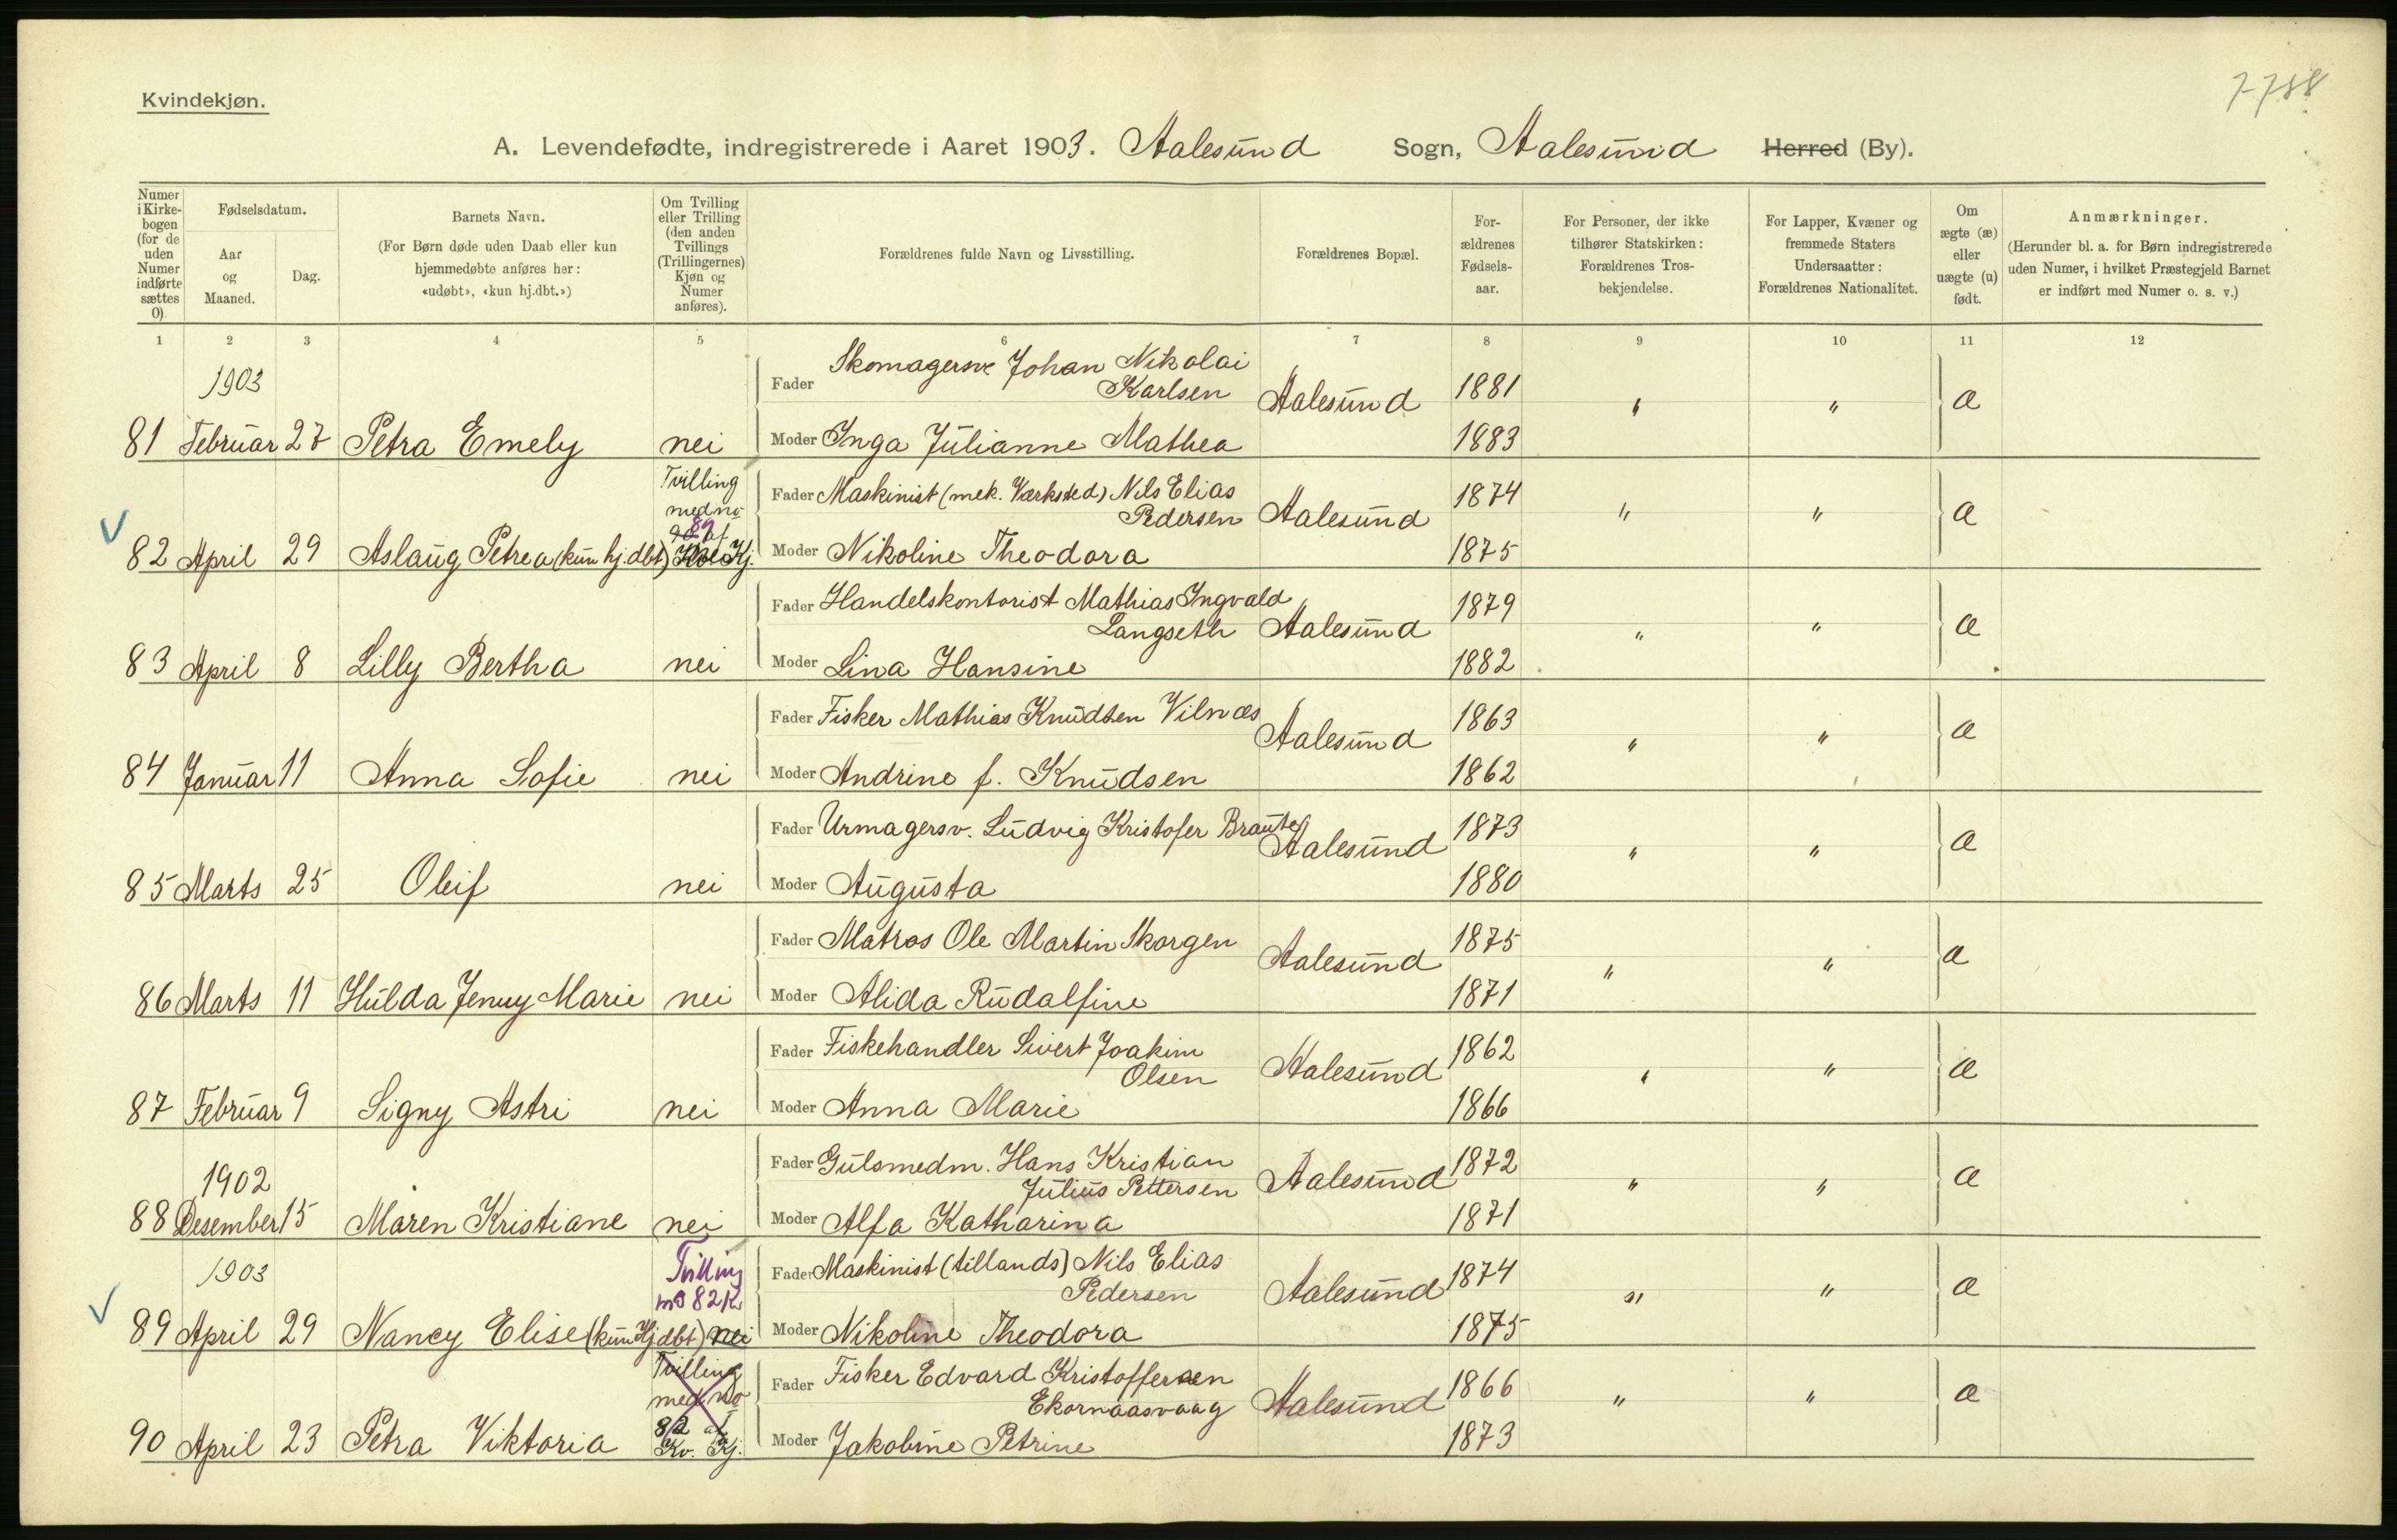 Kvindekjøn.
7-788
A. Levendefødte, indregistrerede i Aaret 1903. Aalesund Sogn, Aalesund Herred (By).
Numer i Kirkebogen (for de uden Numer indførte sættes 0).
Fødselsdatum.
Aar og Maaned.
Dag.
Barnets Navn.
(For Børn døde uden Daab eller kun hjemmedøbte anføres her: «udøbt», «kun hj.dbt.»)
Om Tvilling eller Trilling (den anden Tvillings (Trillingernes) Kjøn og Numer anføres).
Forældrenes fulde Navn og Livsstilling.
Forældrenes Bopæl.
Forældrenes Fødselsaar.
For Personer, der ikke tilhører Statskirken: Forældrenes Trosbekjendelse.
For Lapper, Kvæner og fremmede Staters Undersaatter: Forældrenes Nationalitet.
Om ægte (æ) eller uægte (u) født.
Anmærkninger.
(Herunder bl. a. for Børn indregistrerede uden Numer, i hvilket Præstegjeld Barnet er indført med Numer o. s. v.)
1 2 3 4 5 6 7 8 9 10 11 12
1903
Fader Skomagersv Johan Nikolai
Karlsen Aalesund 1881 " " æ
81 Februar 27 Petra Emely nei Moder Inga Julianne Mathea 1883
Tvilling
med no
89 af
Fader Maskinist (mek. Værksted) Nils Elias 1874
Pedersen Aalesund " " æ
82 April 29 Aslaug Petrea (kun hj.dbt) Kj. Moder Nikoline Theodora 1875
Fader Handelskontorist Mathias Ingvald 1879
Langseth Aalesund " " æ
83 April 8 Lilly Bertha nei Moder Lina Hansine 1882
Fader Fisker Mathias Knudsen Vilnæs 1863
Aalesund " " æ
84 Januar 11 Anna Sofie nei Moder Andrine f. Knudsen 1862
Fader Urmagersv. Ludvig Kristofer 1873
Aalesund " " æ
85 Marts 25 Oleif nei Moder Augusta 1880
Fader Matros Ole Martin Skorgen 1875
Aalesund " " æ
86 Marts 11 Hulda Jenny Marie nei Moder Alida Rudalfine 1871
Fader Fiskehandler Sivert Joakim 1862
Olsen Aalesund " " æ
87 Februar 9 Signy Astri nei Moder Anna Marie 1866
1902
Fader Gulsmedm. Hans Kristian 1872
Julius Pettersen Aalesund " " æ
88 Desember 15 Maren Kristiane nei Moder Alfa Katharina 1871
1903
Tvilling
m 82 K.
Fader Maskinist (tillands) Nils Elias 1874
Pedersen Aalesund " " æ
89 April 29 Nancy Elise (kun Hjdbt) nei Moder Nikoline Theodora 1875
Tvilling
med no
82 af
Kv. Kj.
Fader Fisker Edvard Kristoffersen 1866
Ekornaasvaag Aalesund " " æ
90 April 23 Petra Viktoria Moder Jakobine Petrine 1873